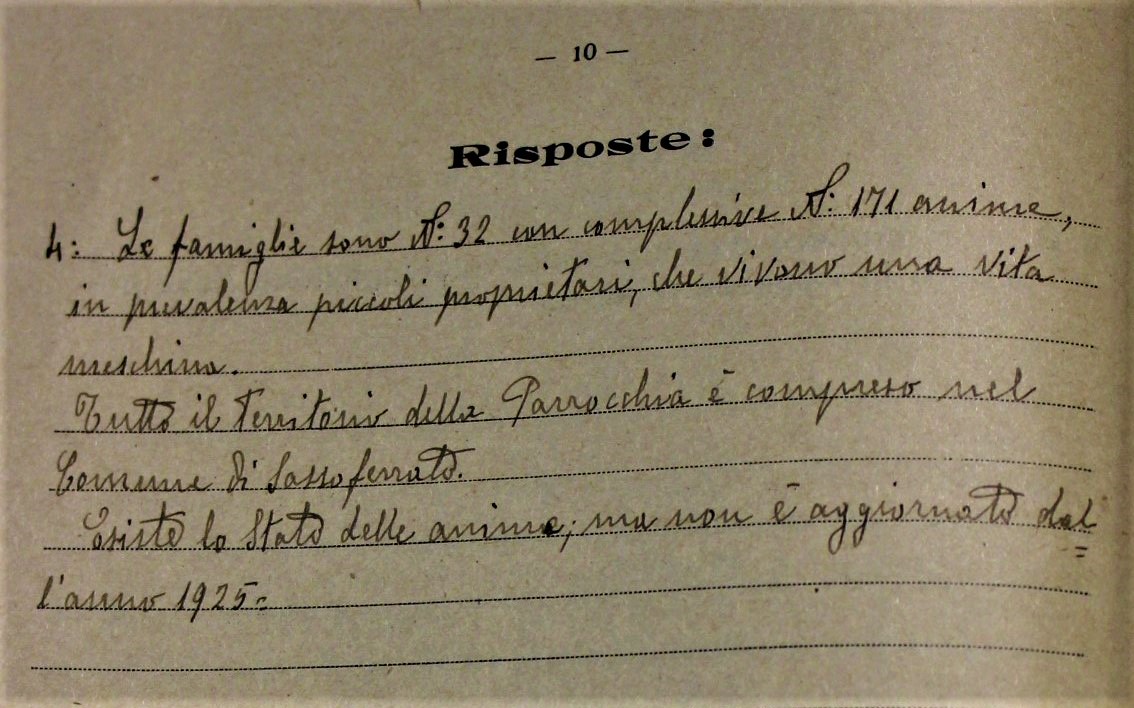 — 10 —
Risposte:
4: Le famiglie sono N: 32 con complessive N: 171 anime,
in prevalenza piccoli proprietari, che vivono una vita
meschina.
Tutto il territorio della Parrocchia è compreso nel
Comune di Sassoferrato.
Esiste lo Stato delle anime; ma non è aggiornato dal=
l'anno 1925=